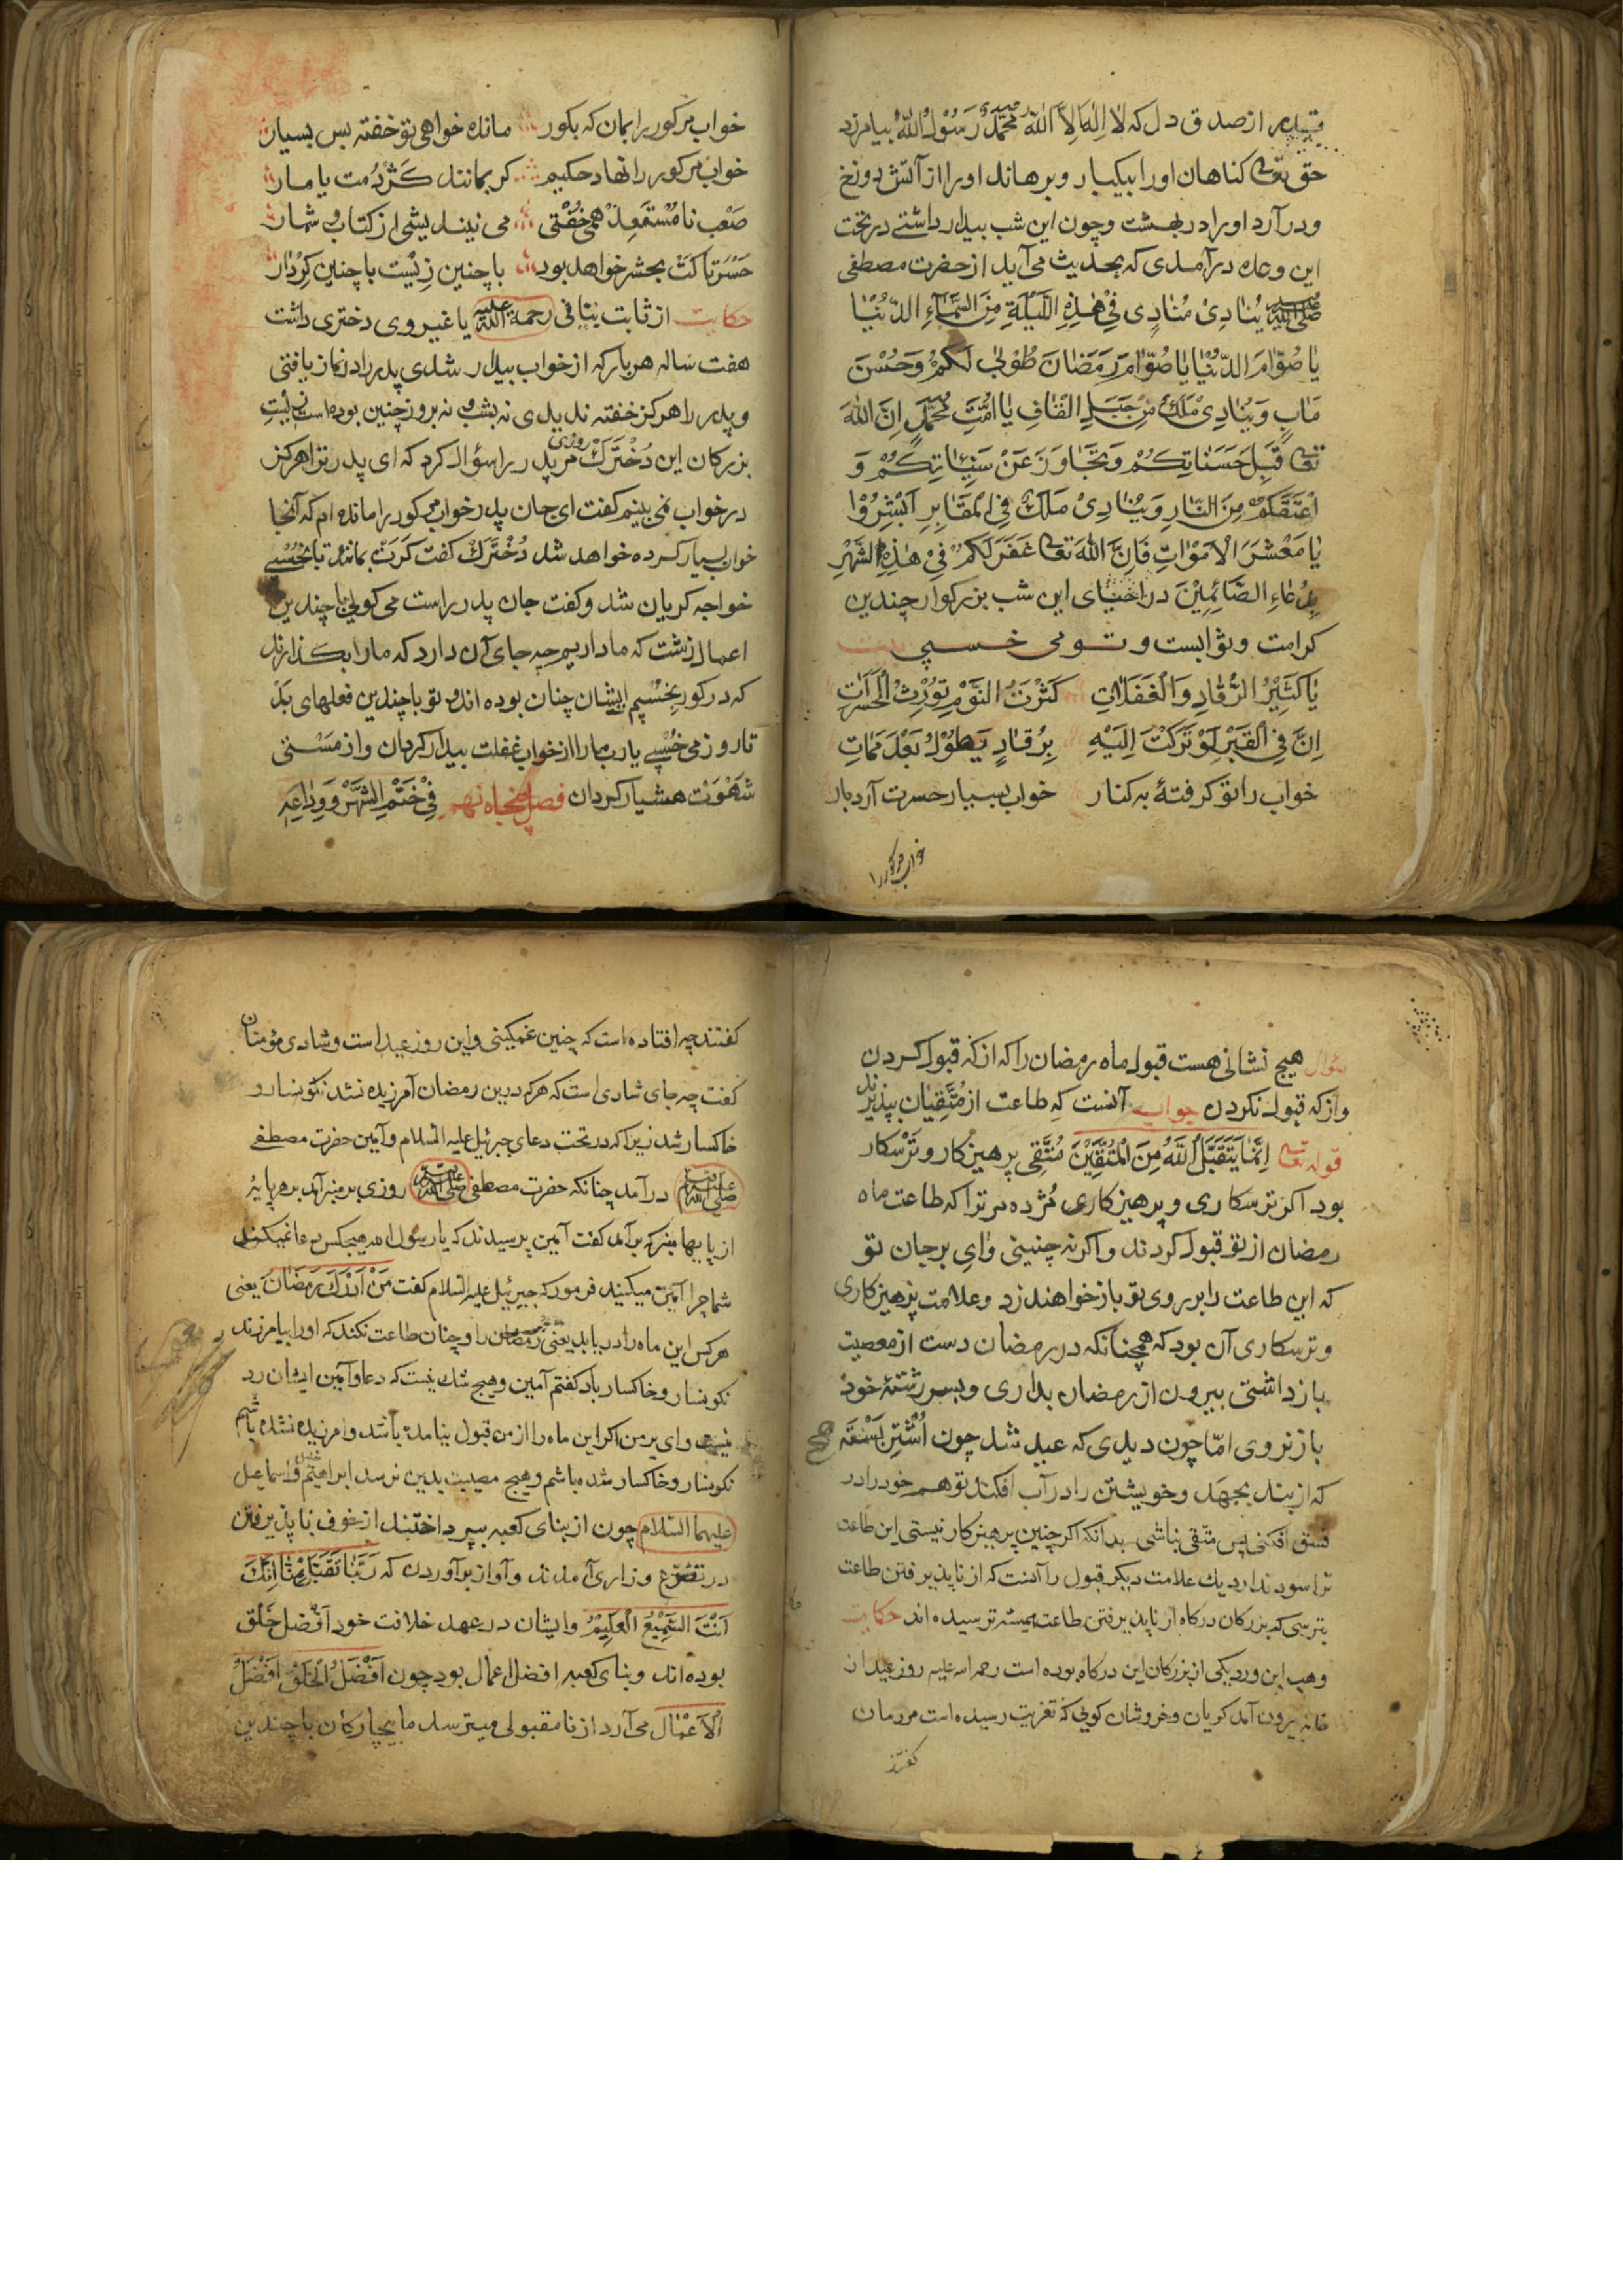 از صدق دل که لَا اِلٰهَ اِلَّا اللّٰهُ مُحَمَّدٌ رَسُوْلُ اللّٰهِ بیامرزد
حق تعالی کناهان اورا بیکبار و برهاند اورا از آتش دوزخ
و درآرد اورا در بهشت و چون این شب بیدار داشتے در تخت
این وعده درآمدی که بحدیث می آید از حضرت مصطفی
صلی الله علیه وسلم یُنَادِیْ مُنَادِی فِیْ هٰذِهِ اللَّیْلَةِ مِنَ السَّمَآءِ الدُّنْیَا
یَا صُوَّامَ الدُّنْیَا یَا صُوَّامَ رَمَضَانَ طُوْبٰی لَکُمْ وَحُسْنَ
مَاٰبٍ وَیُنَادِیْ مَلَكٌ مِنْ جَبَلِ الْقَافِ یَا اُمَّتِ مُحَمَّدٍ اِنَّ اللّٰهَ
تعالی قَبِلَ حَسَنَاتِکُمْ وَتَجَاوَزَ عَنْ سَیِّئَاتِکُمْ وَ
اَعْتَقَکُمْ مِنَ النَّارِ وَیُنَادِیْ مَلَكٌ فِی الْمَقَابِرِ اَبْشِرُوْا
یَا مَعْشَرَ الْاَمْوَاتِ فَاِنَّ اللّٰهَ تعالی غَفَرَ لَکُمْ فِیْ هٰذِهِ الشَّهْرِ
بِدُعَاءِ الصَّائِمِیْنَ در احیای این شب بزرکوار چندین
کرامت و ثوابست و تو می خسپی بیت
یَا کَثِیْرَ الرُّقَادِ وَالْغَفَلَاتِ کَثْرَتُ النَّوْمِ تُوْرِثُ الْحَسَرَاتِ
اِنَّ فِی الْقَبْرِ لَوْ تَرَکْتَ اِلَیْهِ بِرُقَادٍ یَطُوْلُ بَعْدَ مَمَاتِ
خواب را تو کرفتهٔ به کنار خواب بسیار حسرت آرد بار
خواب مر کور را
خواب مر کور را بمان که بکور مانده خواهی تو خفته بس بسیار
خواب مر کور را نهاد حکیم کر بمانند کژدمت یا مار
صَعْب نا مُسْتَعِدْ همی خُفْتی می نیندیشی از کتاب و شمار
حَسْرتا کَتْ بحشر خواهد بود با چنین زِیْست با چنین کِرْدار
حکایت از ثابت بنانی رحمة الله علیه یا غیر وی دختری داشت
هفت ساله هر بار که از خواب بیدار شدی پدر را در نماز یافتی
و پدر را هرکز خفته ندیدی نه بشب و نه بروز چنین بوده است
بزرکان این دُخْتَرَكْ روزی مر پدر را سؤال کرد که ای پدر ترا هرکز
در خواب نمی بینم کفت ای جان پدر خواب مر کور را مانده ام که آنجا
خواب بسیار کرده خواهد شد دُخْتَرَكْ کفت کَرَتْ بمانند تا بخُسْپے
خواجه کریان شد و کفت جان پدر راست می کویی با چندین
اعمال زشت که ما داریم چه جای آن دارد که ما را بکذارند
که در کور بخُسْپیم ایشان چنان بوده اند و تو با چندین فعلهای بد
تا روز می خُسْپے یا رب ما را از خواب غفلت بیدار کردان و از مَسْتی
شَهْوَتْ هشیار کردان فصل پنجاه نهم فِیْ خَتْمِ الشَّهْرِ وَ وِدَاعِهِ
سؤال هیچ نشانی هست قبول ماه رمضان را که از که قبول کردن
و از که قبول نکردن جواب آنست که طاعت از مُتَّقِیان پذیرند
قوله تعالی اِنَّمَا یَتَقَبَّلُ اللّٰهُ مِنَ الْمُتَّقِیْنَ مُتَّقِی پرهیزکار و تَرْسکار
بود اکر ترسکاری و پرهیزکاری مُژده مر ترا که طاعت ماه
رمضان از تو قبول کردند و اکر نه چنینی وای بر جان تو
که این طاعت را بر روی تو باز خواهند زد و علامت پرهیزکاری
و ترسکاری آن بود که همچنانکه در رمضان دست از معصیت
باز داشتی بیرون از رمضان بداری و بسر رشتهٔ خود
باز نروی امّا چون دیدی که عید شد چون اُشْتُرِ بَسْتَه
که از بند بجهد و خویشتن را در آب افکند تو هم خود را در
فسق افکنی پس متّقی نباشی بدانکه اکر چنین پرهیزکار نیستی این طاعت
ترا سود ندارد یك علامت دیکر قبول را آنست که از ناپذیرفتن طاعت
بترسی که بزرکان درکاه از ناپذیرفتن طاعت همیشه ترسیده اند حکایت
وهب ابن ورد یکی از بزرکان این درکاه بوده است رحمه الله علیه روز عید از
خانه بیرون آمد کریان و خروشان کویی که تعزیت رسیده است مردمان
کفتند
کفتند چه افتاده است که چنین غمکینی و این روز عید است و شادی مؤمنان
کفت چه جای شادی است که هر که درین رمضان آمرزیده نشد نکونسار و
خاکسار شد زیرا که در تحت دعای جبرئیل علیه السلام و آمین حضرت مصطفے
صلی الله علیه وسلم درآمد چنانکه حضرت مصطفی صلی الله علیه وسلم روزی بر منبر آمد بر هر پایهٔ
از پایها منبر که برآمد کفت آمین پرسیدند که یا رسول الله هیچکس دعا نمیکند
شما چرا آمین میکنید فرمود که جبرئیل علیه السلام کفت مَنْ اَدْرَكَ رَمَضَانَ یعنی
هر کس این ماه را دریابد یعنی رمضان را و چنان طاعت نکند که اورا بیامرزند
نکونسار و خاکسار باد کفتم آمین و هیچ شك نیست که دعا و آمین ایشان رد
نیست وای بر من اکر این ماه را از من قبول نیامده باشد و آمرزیده نشده باشم
نکونسار و خاکسار شده باشم و هیچ مصیبت بدین نرسد ابراهیم و اسماعیل
علیهما السلام چون از بنای کعبه بپرداختند از خوف ناپذیرفتن
در تضرع و زاری آمدند و آواز برآوردن که رَبَّنَا تَقَبَّلْ مِنَّا اِنَّكَ
اَنْتَ السَّمِیْعُ الْعَلِیْمُ و ایشان در عهد خلافت خود اَفْضل خَلْق
بوده اند و بنای کعبه افضل اعمال بود چون اَفْضَلُ الْخَلْقِ اَفْضَلُ
الْاَعْمَال می آرد از نا مقبولی میترسد ما بیچارکان با چندین